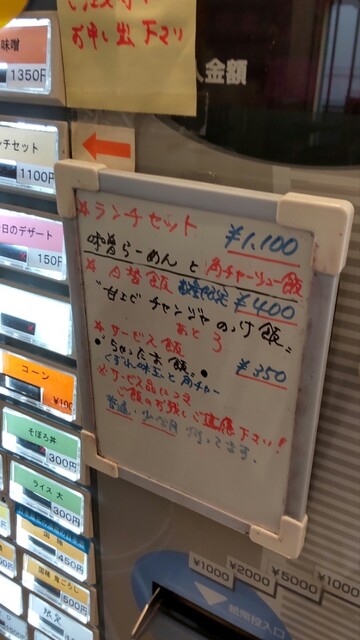 お申し出下さい
味噌
1350円
ンチセット
1100円
日のデザート
150円
コーン
¥100
そぼろ丼
300円
ライス 大
300円
450円
500円
入金額
☆ランチセット ¥1,100
味噌らーめん と 角チャーシュー飯
☆日替飯 ¥400
"甘エビチャンジャのっけ飯"
あと3
☆サービス飯 ¥350
くずれ味玉と角チャー
※サービス品につき
ご飯のお残しご遠慮下さい!
普通・少なめ 承ってます。
¥1000
¥2000
¥5000
¥1000
紙幣投入口